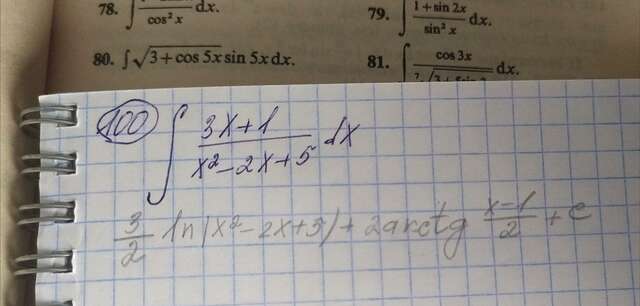 78. ∫ dx. / cos² x
79. ∫ (1 + sin 2x) / (sin² x) dx.
80. ∫ √(3 + cos 5x) sin 5x dx.
81. ∫ cos 3x / dx.
100 ∫ (3x+1) / (x²-2x+5) dx
3/2 ln|x²-2x+5|+2arctg (x-1)/2 + c